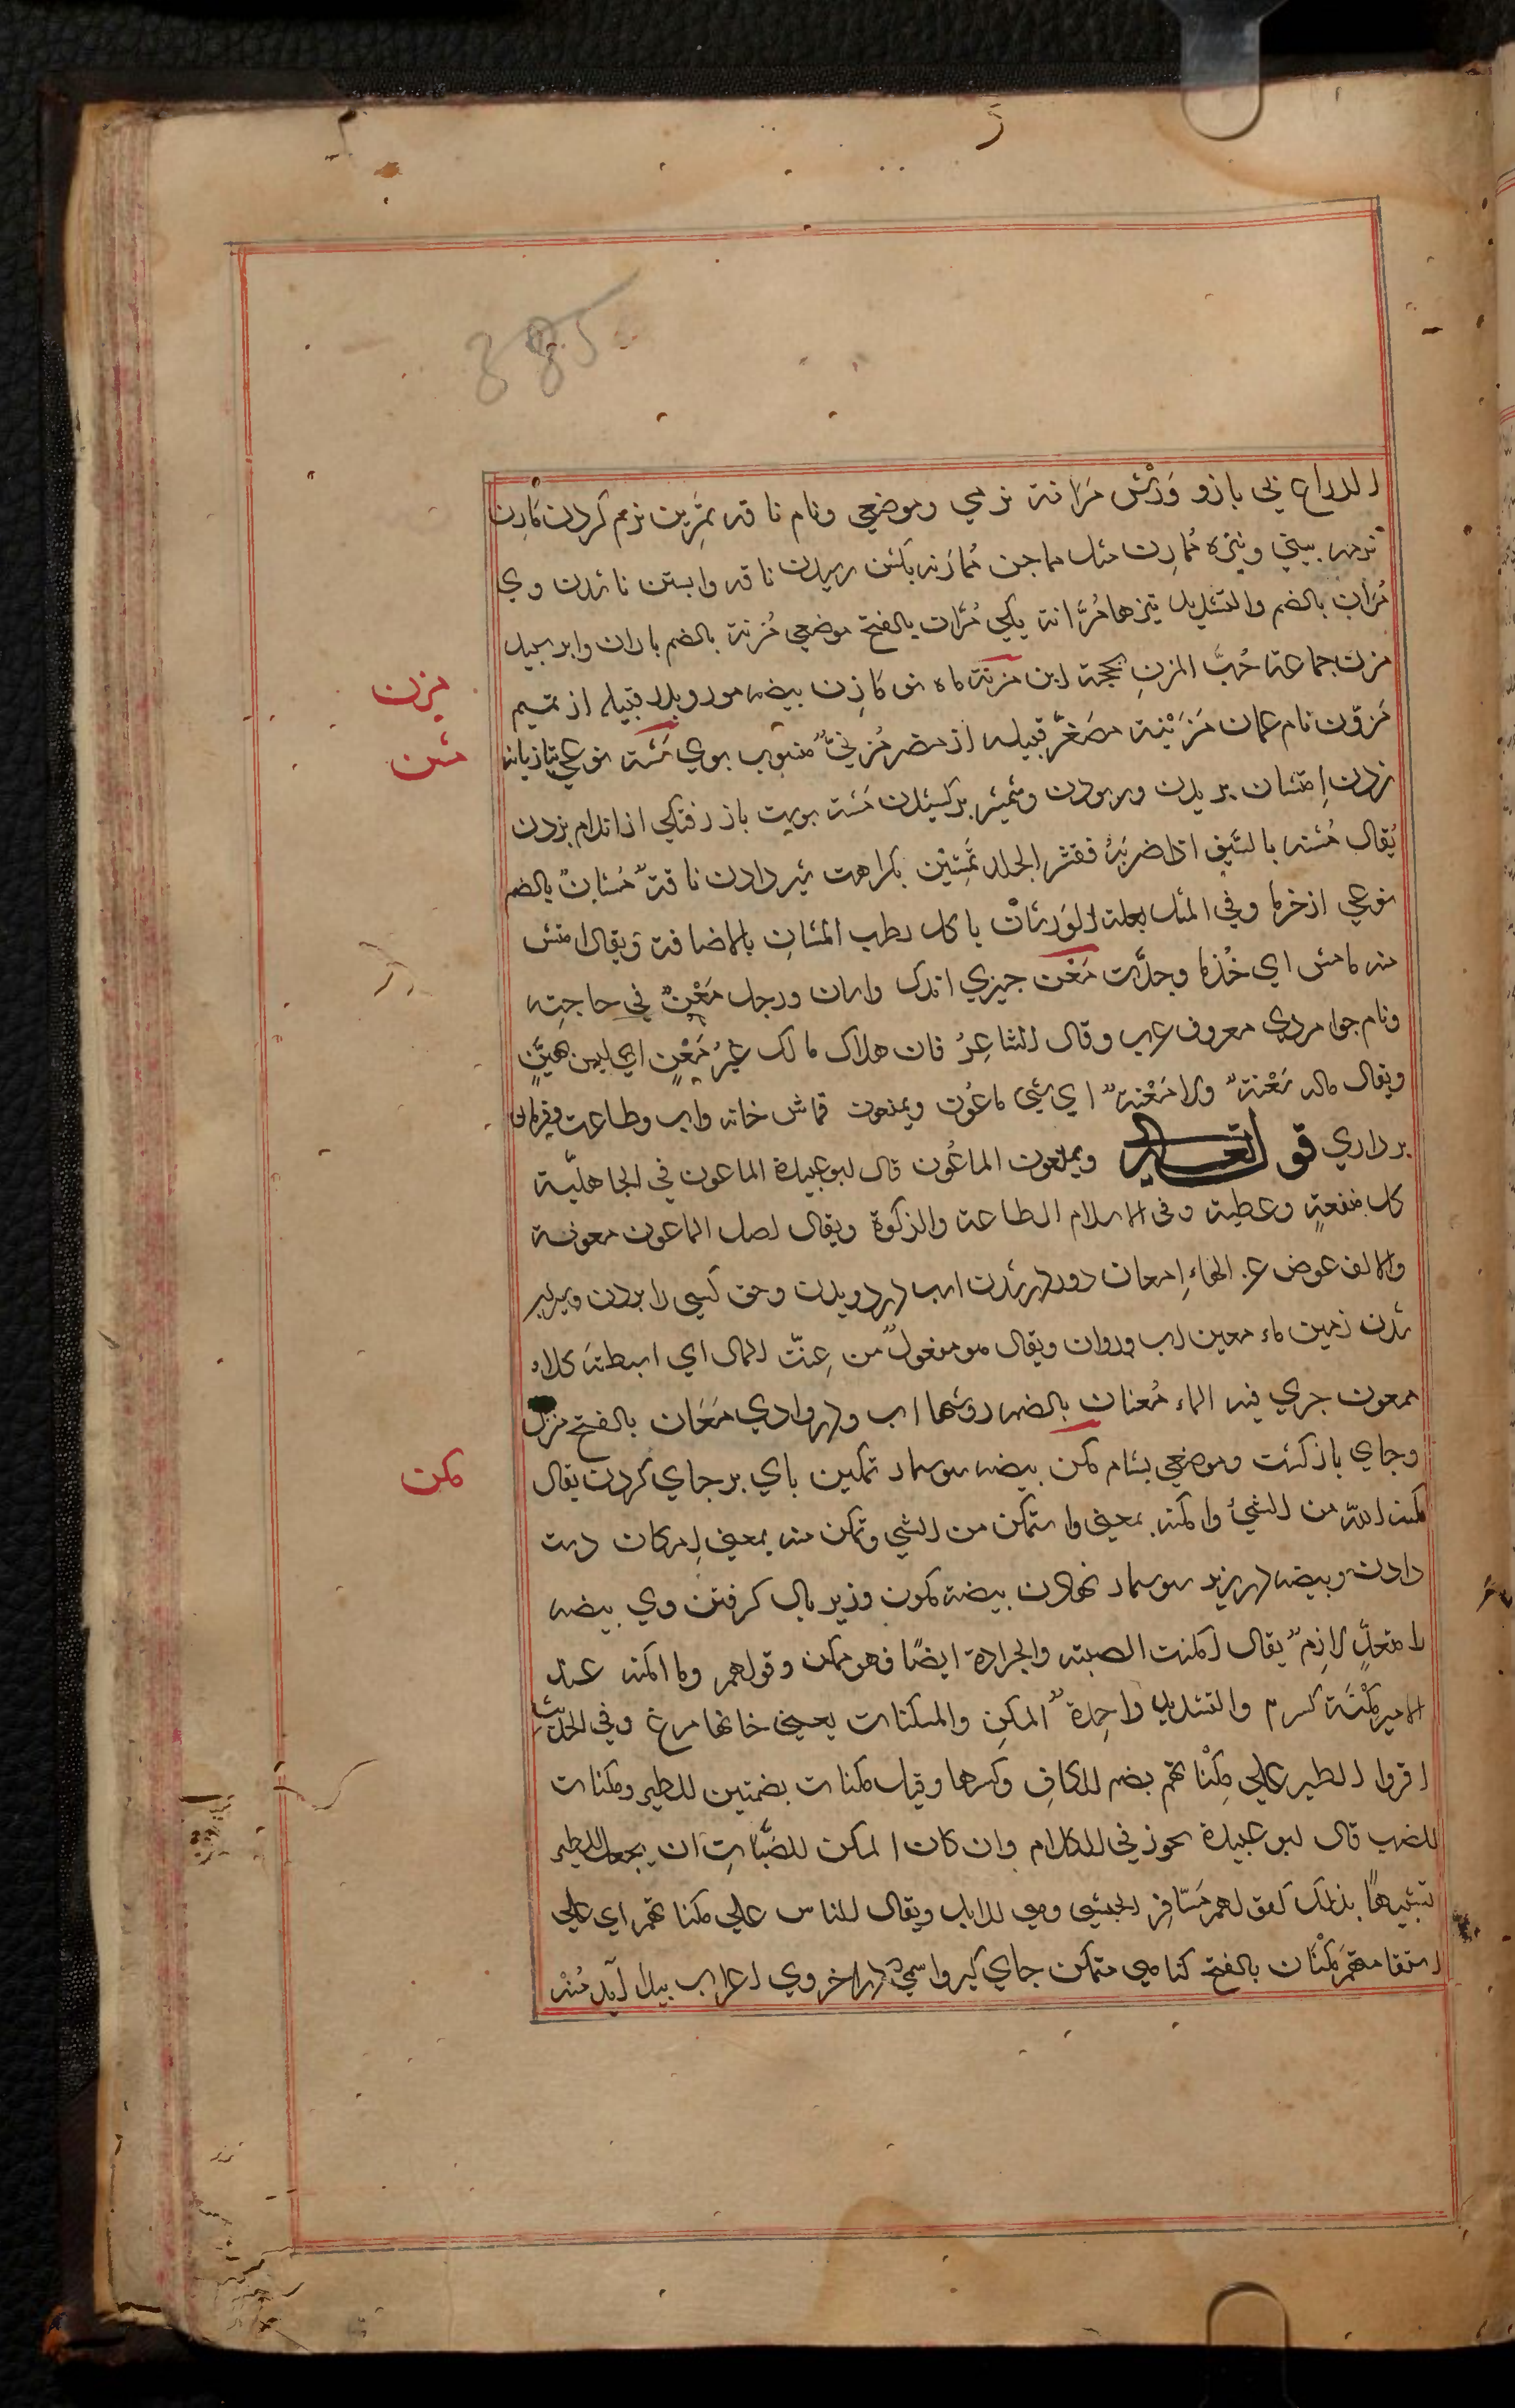 الذراع پی بازو وَرگش مَرَانة نرمي وموضعي ونام ناقه تمْرِين نرم کردن مَارِن
نرمه بيني ونيزه مُمارِن مثل مماجن مُمَارَنه بکشن رسيدن ناقه وابستن ناشدن وي
مُرّان بالضم والتشديد نيزها مُرَّانة يکي مَرَّان بالفتح موضعي مُزنة بالضم باران وابر سپيد
مزن جماعة حَبُّ المزن بججة ابن مزنة ماه نو مَازِن بيضه مور وپدر قبيله از تميم
مَزون نام عمان مُزَيْنة مصَغّر قبيله از مضر مُزَنيٌّ منسوب بوي مَشن نوعي تازيانه
زدن اِمتشان بريدن وربودن وشمشير برکشيدن مَشنه بوست باز رفتگي از اندام بزدن
يُقال مَشنه بالسّيف اذا ضربَهُ فقشر الجلد تَمْشِيْن بکراهت شير دادن ناقةٌ مُشانٌ بالضم
نوعي از خرما وفي المثل بعلة الوَرَشَان ياکل رطب المُشانِ بالاضافة وَيقال امتش
منه مامش اي خُذ ما وجدت مَعْن چيزي اندک واسان ورجل مَعْنٌ في حاجته
ونام جوامردي معروف عرب وقال الشاعِرُ فان هلاک مالک غيرُ مَعْنٍ اي ليس هيّنٍ
ويقال ماله سَعْنةٌ ولا مَعْنةٌ اي شيئ ماعُون ويمنعون قماش خانه واب وطاعت وفرمان
برداري قوله تعالى ويمنعون الماعُون قال ابوعبيدة الماعون في الجاهليّة
کل منفعةٍ وعطية وفي الاسلام الطاعة والزکوة ويقال اصل الماعون معونة
والالف عوض عن الهاء اِمعان دور در شدن اسب در دويدن وحق کسي را بردن وسيراب
شدن زمين ماء معين اب روان ويقال هو مفعولٌ من عِنْت الماء اي استنبطته کلاء
ممعون جري فيه الماء مُعنان بالضم روشها اب در وادي مَعَان بالفتح منزل
وجاي بازگشت وموضعي بشام مَکن بيضه سوسمار تمکين پاي برجاي کردن يقال
مکنه الله من الشيْ وامکنه بمعنى واستمکن من الشي وتمکن منه بمعنى اِمکان دست
دادن وبيضه در زير سوسمار نهادن بيضه مکون وزير بال گرفتن وي بيضه
را متعدٍّ لازِمٌ يقال امکنت الضبة والجرادة ايضًا فهو ممکن وقولهم وما امکنه عند
الامير مَکْنَة کسره والتشديد واحِدةٌ المکِن والمکنات يعني خانها مرغ وفي الحديث
اقروا الطير علي مِکْناتهم بضم الکاف وکسرها وقيل مکنات بضمتين للطير ومکنات
للضب قال ابوعبيدة يجوز في الکلام وان کان المکن للضّباب ان يجعل للطير
تشبيهًا بذلک کقولهم مَشافِر الحبشي وهي للابل ويقال الناس علي مکناتهم اي علي
استقامتهم مَکْنَان بالفتح گياهي متمکن جاي گير واسمي که در اخر وي اعراب پيدا آيد مُنّه
مزن
مشن
مکن